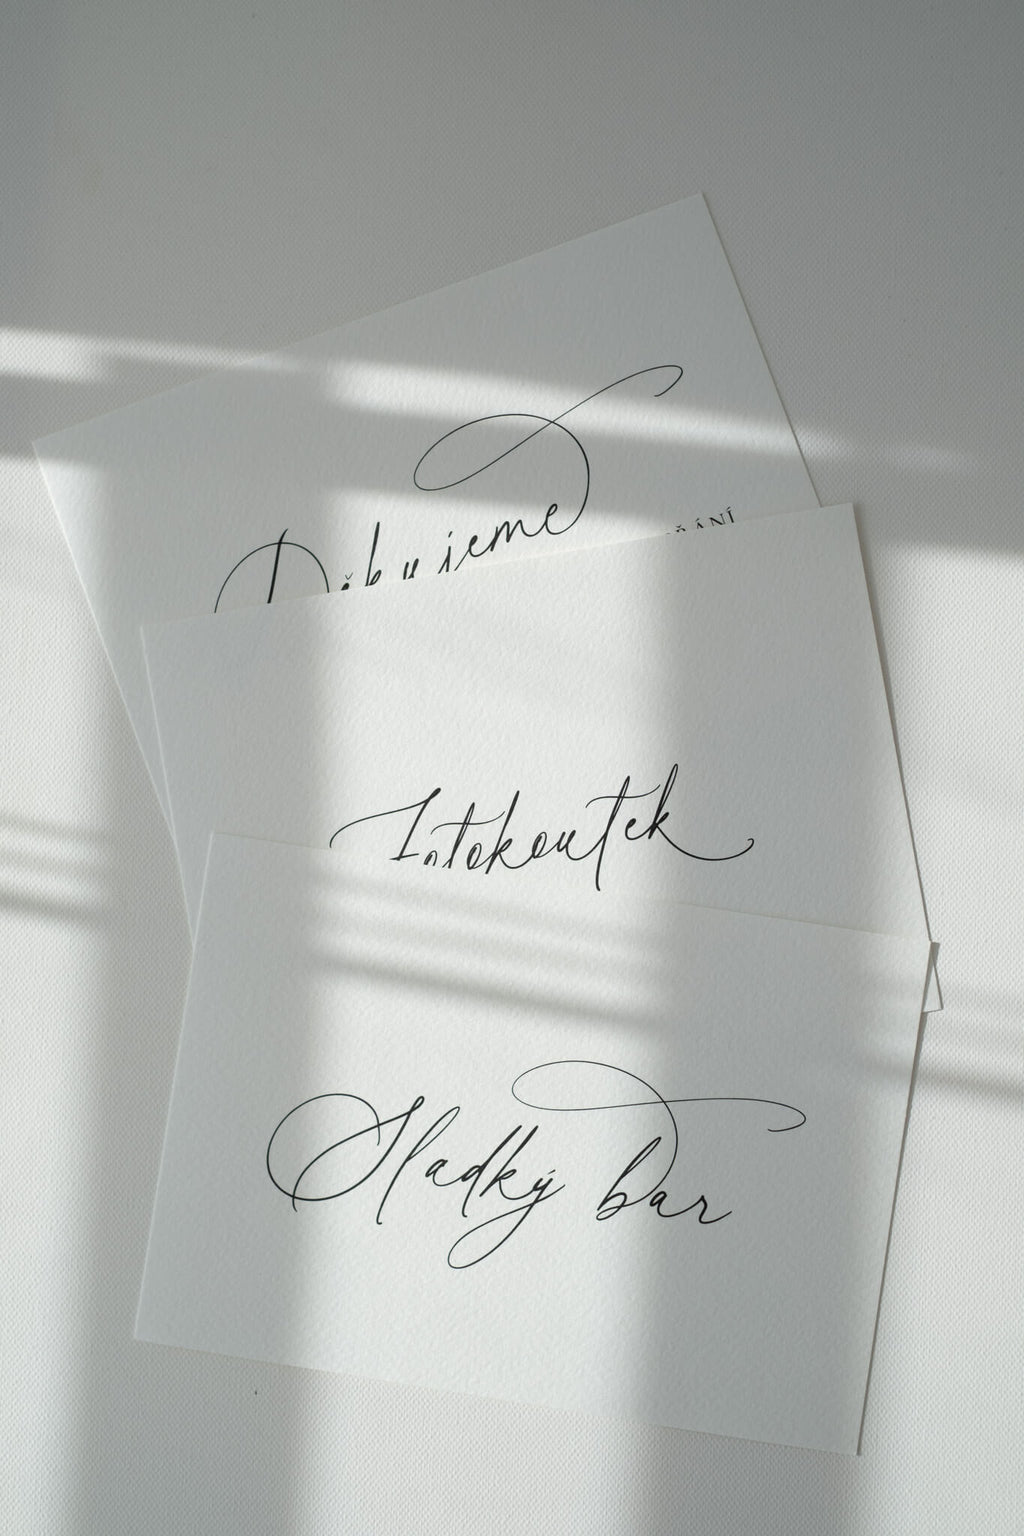 Děkujeme
Fotokoutek
Sladký bar